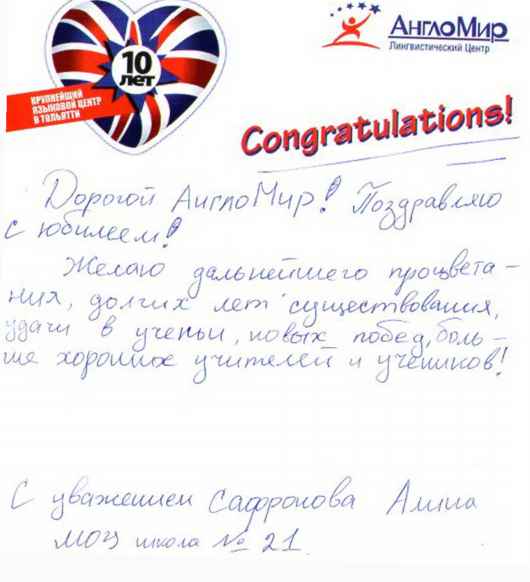 10
лет
КРУПНЕЙШИЙ
ЯЗЫКОВОЙ ЦЕНТР
В ТОЛЬЯТТИ
АнглоМир
Лингвистический Центр
Congratulations!
Дорогой АнглоМир! Поздравляю
с юбилеем!
Желаю дальнейшего процвета-
ния, долгих лет существования,
удачи в ученьи, новых побед, боль-
ше хороших учителей и учеников!
С уважением Сафронова Алина
МОУ школа № 21